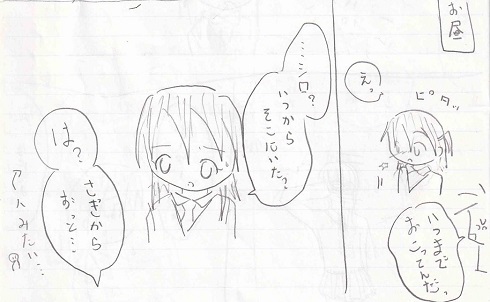 お昼
えっ
ピタッ
いつまで
おこってんだっ
…シロ?
いつから
そこにいた?
は?
さっきから
おっと…
↑ハみたい…